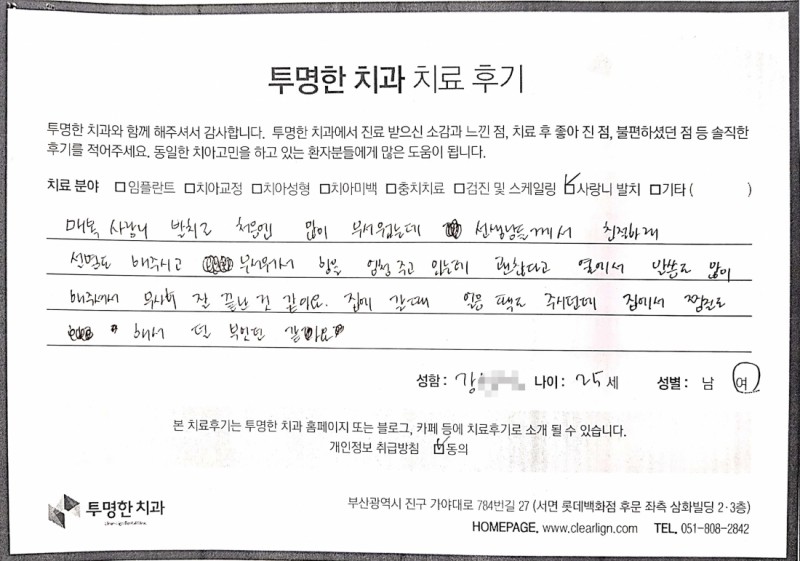 투명한 치과 치료 후기
투명한 치과와 함께 해주셔서 감사합니다. 투명한 치과에서 진료 받으신 소감과 느낀 점, 치료 후 좋아 진 점, 불편하셨던 점 등 솔직한
후기를 적어주세요. 동일한 치아고민을 하고 있는 환자분들에게 많은 도움이 됩니다.
치료 분야 □임플란트 □치아교정 □치아성형 □치아미백 □충치치료 □검진 및 스케일링 ☑사랑니 발치 □기타 ( )
매복 사랑니 발치로 처음엔 많이 부서웠는데 선생님들께서 친절하게
설명도 해주시고 무서워서 힘을 엄청 주고 있는데 괜찮다고 옆에서 말씀도 많이
해주셔서 무사히 잘 끝난 것 같아요. 집에 갈때 얼음 팩도 주시던데 집에서 찜질도
해서 덜 부은던 같아요
성함 : 강 나이 : 25 세 성별 : 남 여
본 치료후기는 투명한 치과 홈페이지 또는 블로그, 카페 등에 치료후기로 소개 될 수 있습니다.
개인정보 취급방침 ☑동의
투명한 치과
부산광역시 진구 가야대로 784번길 27 (서면 롯데백화점 후문 좌측 삼화빌딩 2·3층)
HOMEPAGE. www.clearlign.com TEL. 051-808-2842